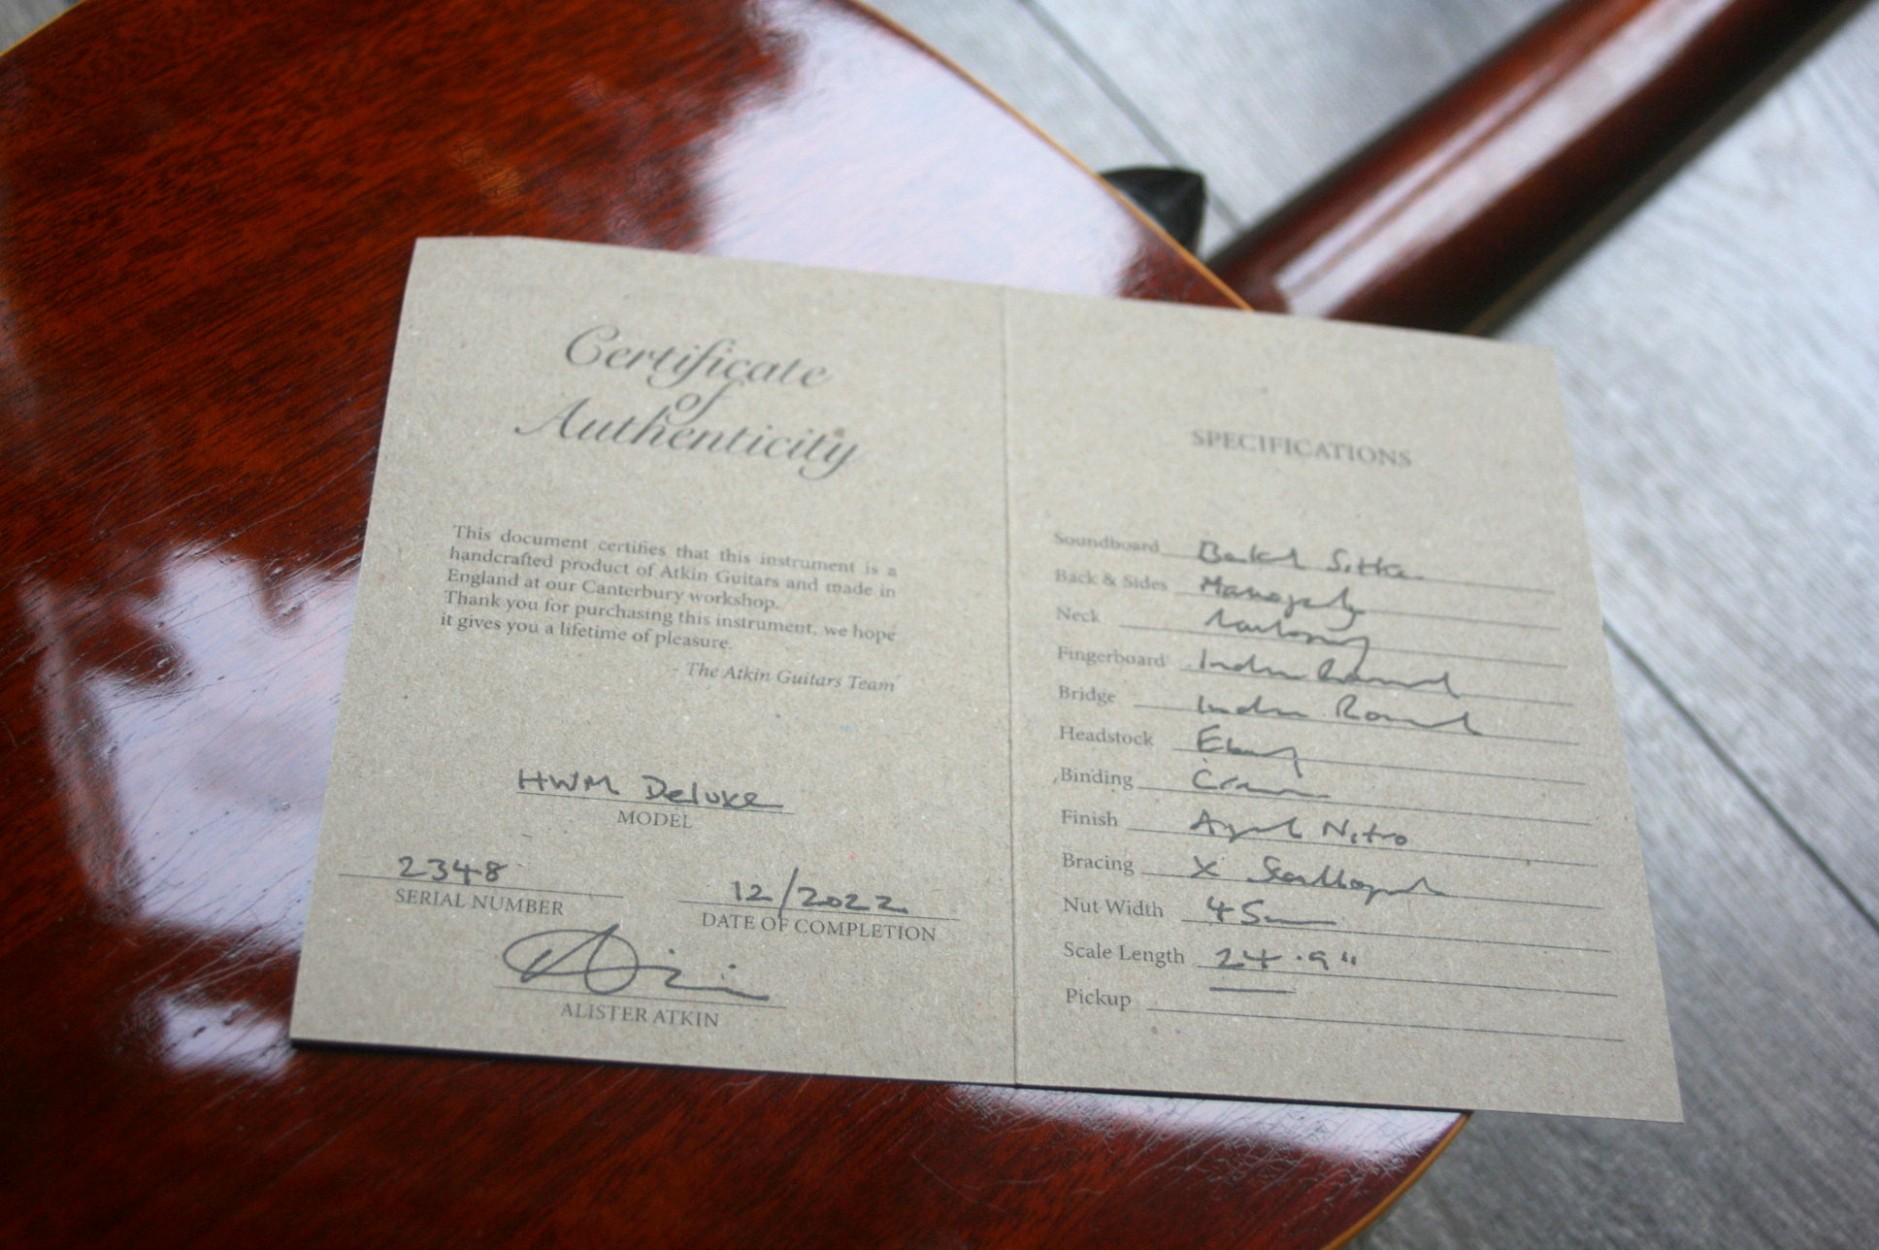 Certificate
of
Authenticity
This document certifies that this instrument is a
handcrafted product of Atkin Guitars and made in
England at our Canterbury workshop.
Thank you for purchasing this instrument, we hope
it gives you a lifetime of pleasure.
- The Atkin Guitars Team
HWM Deluxe
MODEL
2348
SERIAL NUMBER
12/2022
DATE OF COMPLETION
ALISTER ATKIN
SPECIFICATIONS
Soundboard Baked Sitka
Back & Sides Mahogany
Neck Mahogany
Fingerboard Indian Rosewood
Bridge Indian Rosewood
Headstock Ebony
Binding Cream
Finish Aged Nitro
Bracing X Scalloped
Nut Width 45mm
Scale Length 24.9"
Pickup